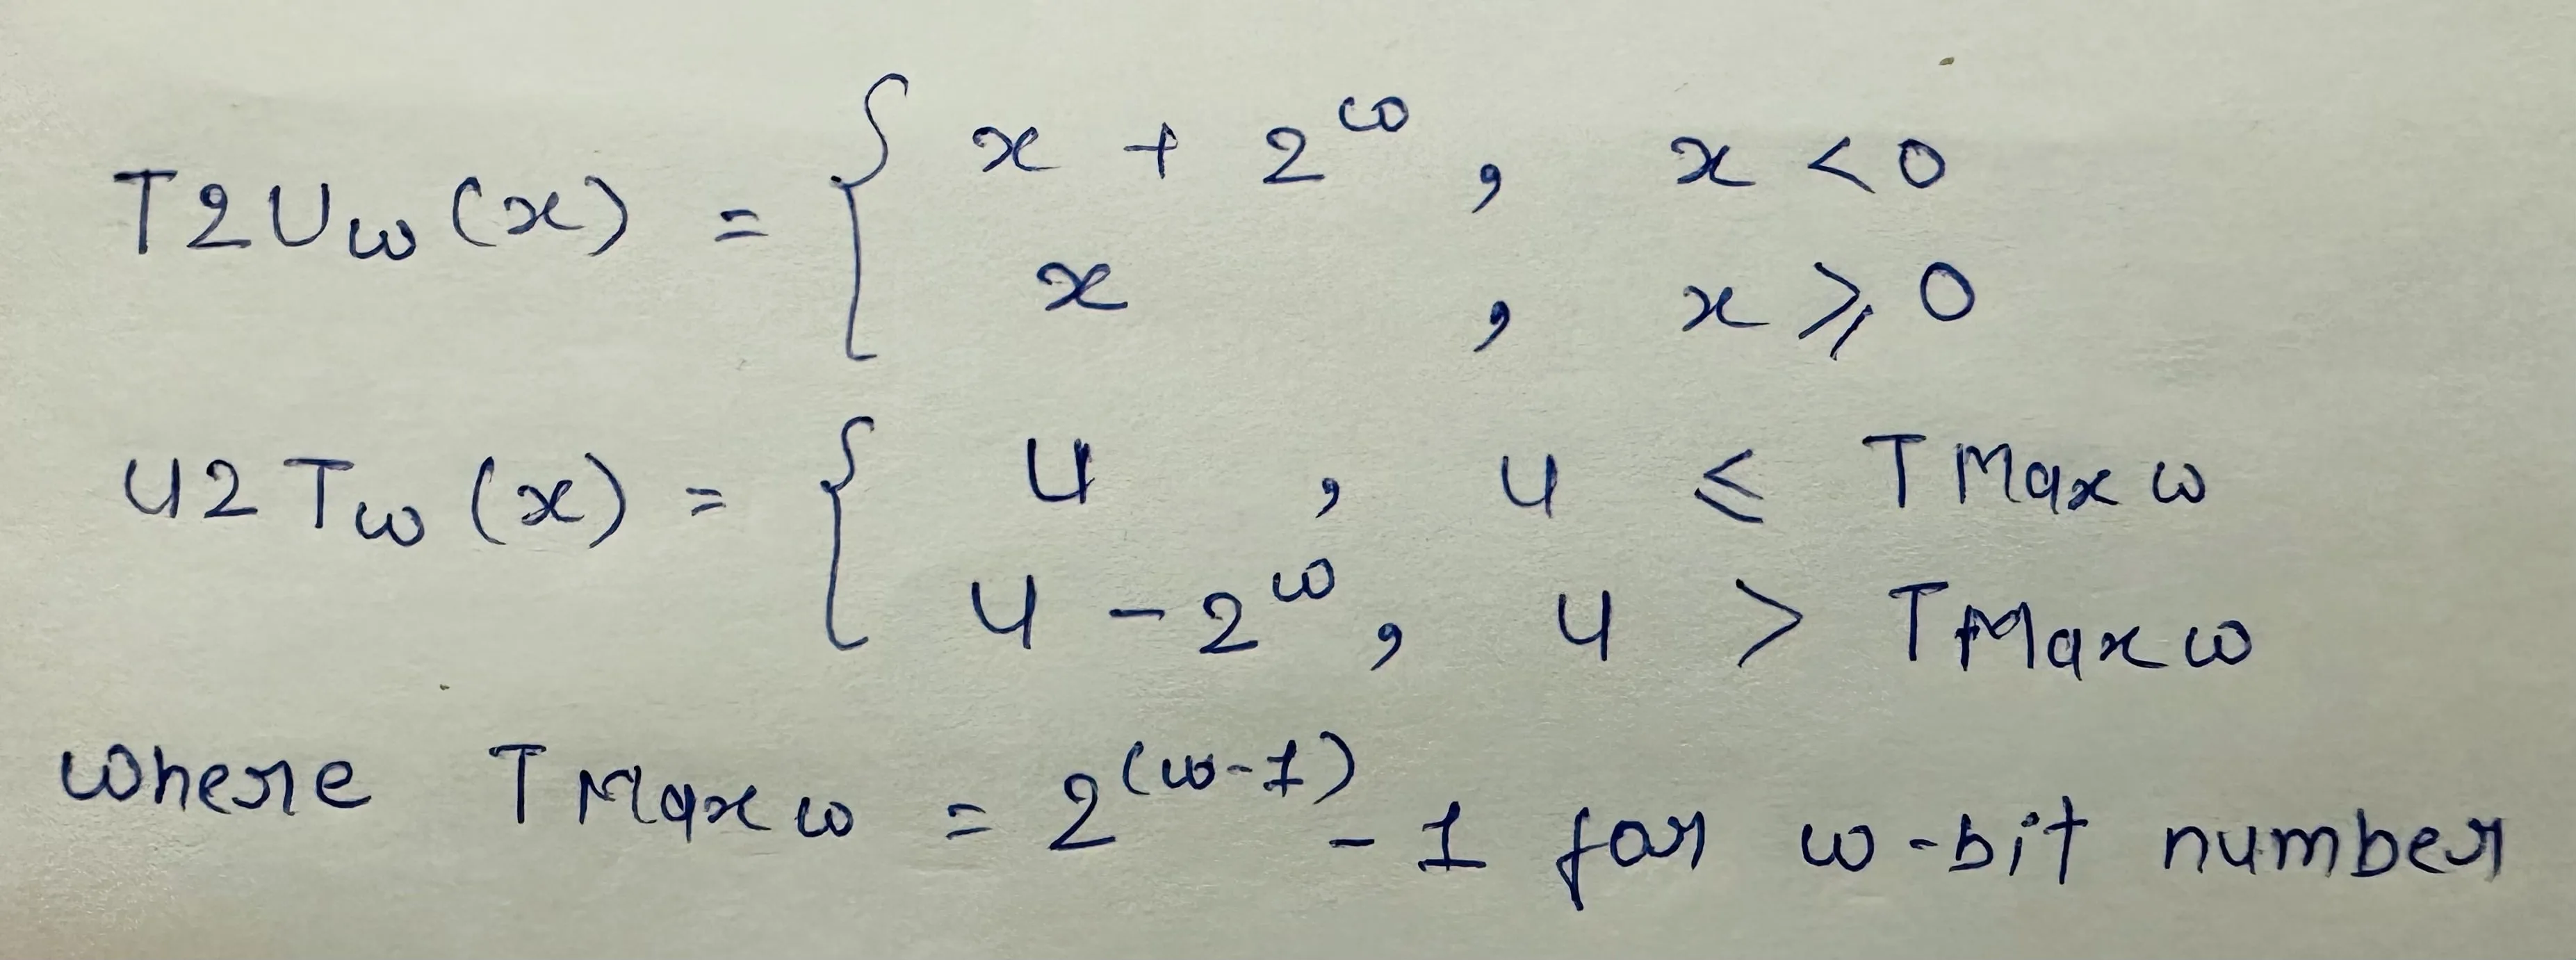 T2U_w(x) = { x + 2^w , x < 0
x , x ≥ 0
U2T_w(x) = { u , u ≤ TMax w
u - 2^w , u > TMax w
where TMax w = 2^(w-1) - 1 for w-bit number